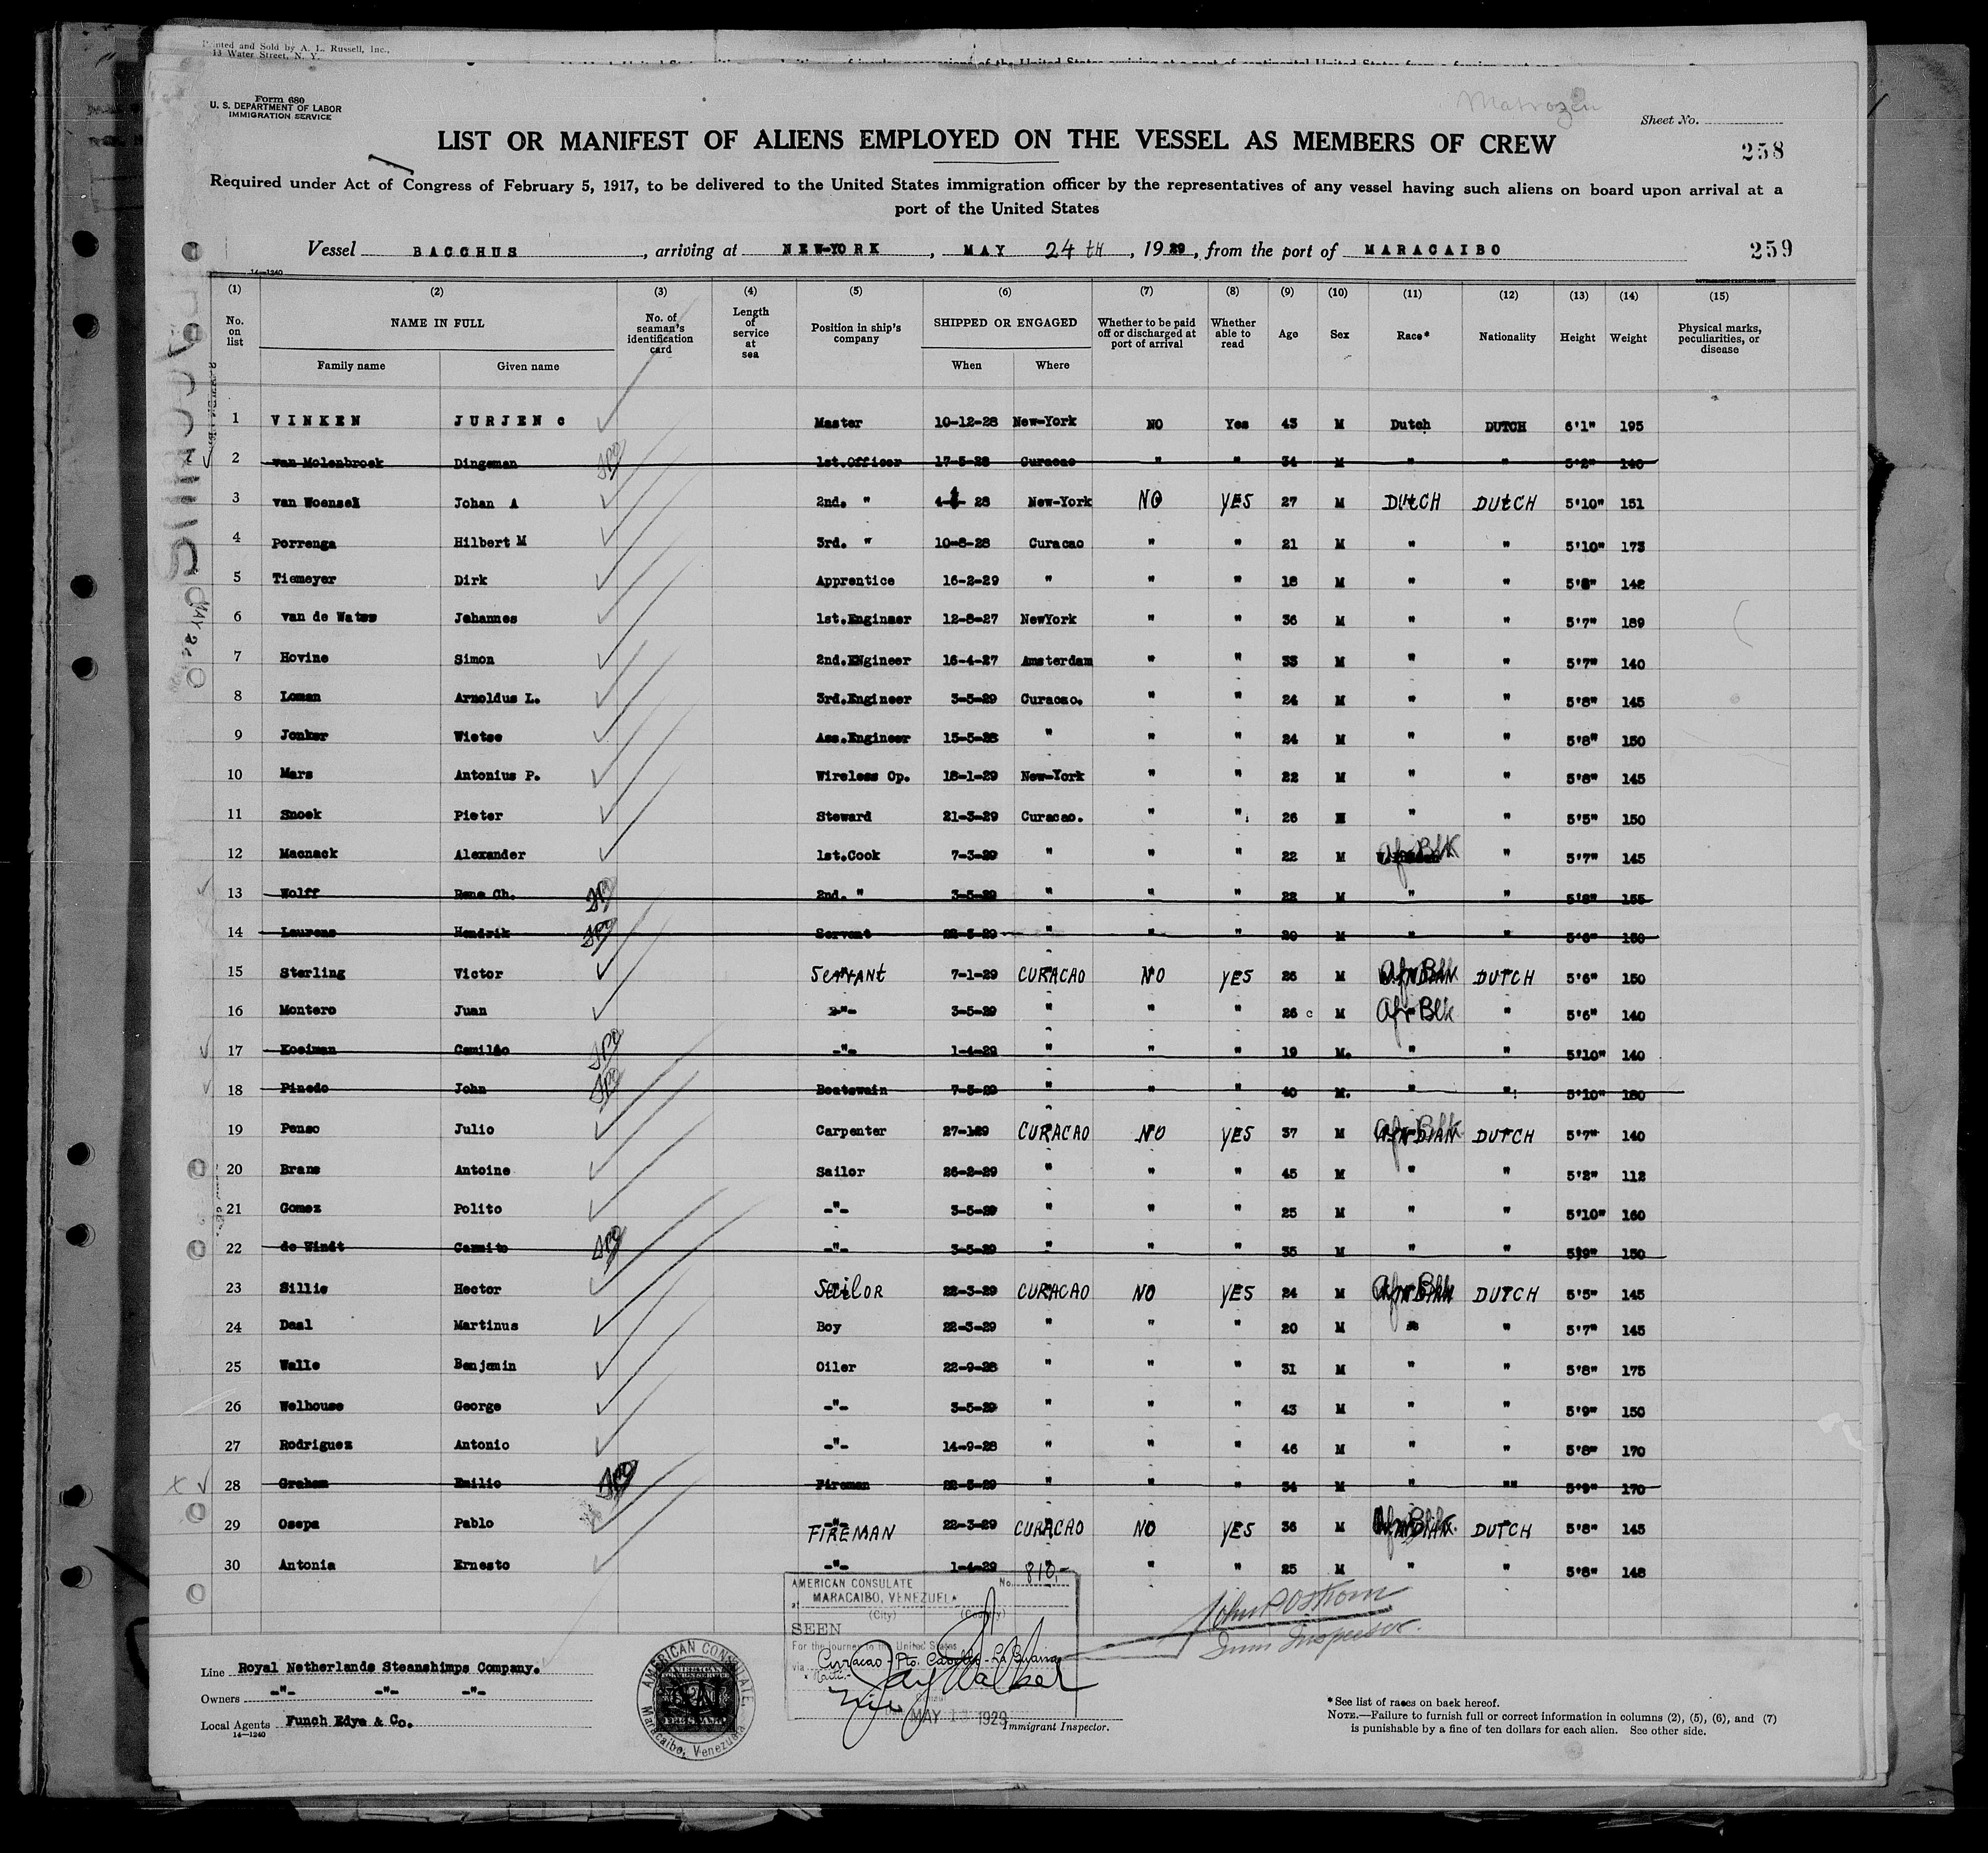 Printed and Sold by A. L. Russell, Inc.,
13 Water Street, N. Y.
Form 680
U. S. DEPARTMENT OF LABOR
IMMIGRATION SERVICE
Matrozen
Sheet No.
LIST OR MANIFEST OF ALIENS EMPLOYED ON THE VESSEL AS MEMBERS OF CREW
258
Required under Act of Congress of February 5, 1917, to be delivered to the United States immigration officer by the representatives of any vessel having such aliens on board upon arrival at a
port of the United States
Vessel BACCHUS, arriving at NEW-YORK, MAY 24 tH, 1929, from the port of MARACAIBO
259
14-1240
(1) (2) (3) (4) (5) (6) (7) (8) (9) (10) (11) (12) (13) (14) (15)
No. on list NAME IN FULL Family name Given name No. of seaman's identification card Length of service at sea Position in ship's company SHIPPED OR ENGAGED When Where Whether to be paid off or discharged at port of arrival Whether able to read Age Sex Race* Nationality Height Weight Physical marks, peculiarities, or disease
1 VINKEN JURJEN C Master 10-12-28 New-York NO Yes 43 M Dutch DUTCH 6'1" 195
2 van Molenbroek Dingeman 1st.Officer 17-5-28 Curacao " " 34 M " " 5'2" 140
3 van Woensel Johan A 2nd. " 28 New-York NO YES 27 M DUtCH DUtCH 5'10" 151
4 Porrenga Hilbert M 3rd. " 10-8-28 Curacao " " 21 M " " 5'10" 173
5 Tiemeyer Dirk Apprentice 16-2-29 " " " 18 M " " 5'8" 142
6 van de Water Johannes 1st.Engineer 12-8-27 NewYork " " 36 M " " 5'7" 189
7 Hovine Simon 2nd.ENgineer 16-4-27 Amsterdam " " 33 M " " 5'7" 140
8 Loman Arnoldus L. 3rd.Engineer 3-5-29 Curacao. " " 24 M " " 5'8" 145
9 Jonker Wietse Ass.Engineer 15-5-28 " " " 24 M " " 5'8" 150
10 Mars Antonius P. Wireless Op. 18-1-29 New-York " " 22 M " " 5'8" 145
11 Snoek Pieter Steward 21-3-29 Curacao. " " 26 M " " 5'5" 150
12 Macnack Alexander 1st.Cook 7-3-29 " " " 22 M Afr Blk " 5'7" 145
13 Wolff Rene Ch. 2nd. " 3-5-29 " " " 22 M " " 5'8" 155
14 Laurens Hendrik Servant 22-5-29 " " " 20 M " " 5'6" 150
15 Sterling Victor SerVANt 7-1-29 CURACAO NO YES 26 M Afr Blk DUTCH 5'6" 150
16 Montero Juan -"- 3-5-29 " " " 26 c M Afr Blk " 5'6" 140
17 Kooiman Camilio -"- 1-4-29 " " " 19 M. " " 5'10" 140
18 Pinedo John Boatswain 7-5-29 " " " 40 M. " " 5'10" 180
19 Penso Julio Carpenter 27-129 CURACAO NO YES 37 M Afr Blk DUTCH 5'7" 140
20 Brans Antoine Sailor 26-2-29 " " " 45 M " " 5'2" 112
21 Gomez Polito -"- 3-5-29 " " " 25 M " " 5'10" 160
22 de Windt Carmito -"- 3-5-29 " " " 35 M " " 5'9" 150
23 Sillie Hector SailOR 22-3-29 CURACAO NO YES 24 M Afr Blk DUTCH 5'5" 145
24 Daal Martinus Boy 22-3-29 " " " 20 M " " 5'7" 145
25 Walle Benjamin Oiler 22-9-28 " " " 31 M " " 5'8" 175
26 Welhouse George -"- 3-5-29 " " " 43 M " " 5'9" 150
27 Rodriguez Antonio -"- 14-9-28 " " " 46 M " " 5'8" 170
28 Graham Emilio Fireman 22-5-29 " " " 34 M " "" 5'9" 170
29 Osepa Pablo -"- FIREMAN 22-3-29 CURACAO NO YES 36 M Afr Blk. DUTCH 5'8" 145
30 Antonia Ernesto -"- 1-4-29 " " " 25 M " " 5'8" 148
AMERICAN CONSULATE No. 810.-
at MARACAIBO, VENEZUELA
(City) (Country)
SEEN
For the journey to the United States
via Curacao - Pto. Cabello - La Guaira
Jay Walker
MAY 1929
Immigrant Inspector.
John P Ostrom
Imm Inspector.
AMERICAN CONSULATE.
Maracaibo, Venezuela
Line Royal Netherlands Steanshimps Company.
Owners -"- -"- -"-
Local Agents Funch Edye & Co.
14-1240
*See list of races on back hereof.
NOTE.—Failure to furnish full or correct information in columns (2), (5), (6), and (7)
is punishable by a fine of ten dollars for each alien. See other side.